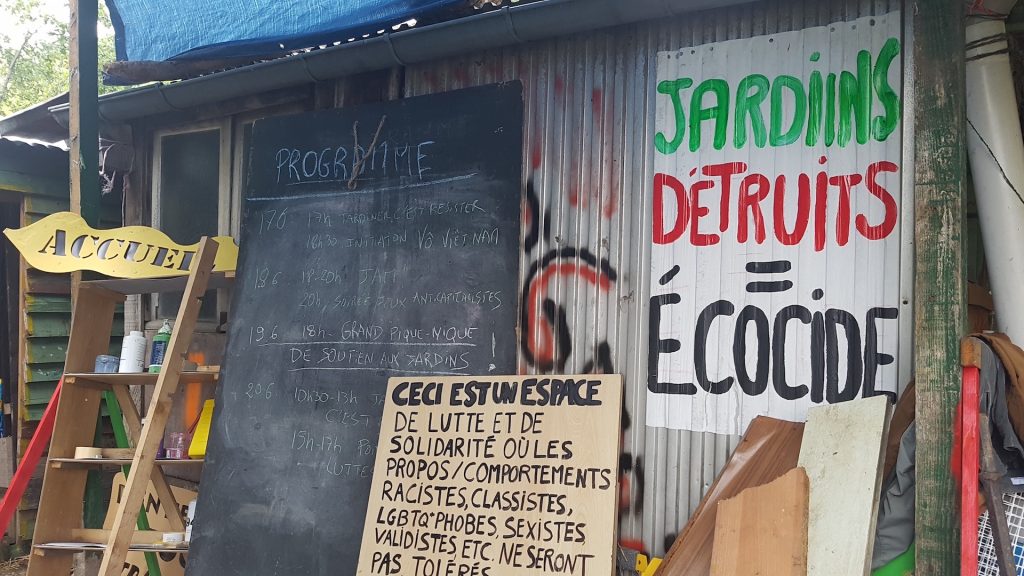 ACCUEIL
PROGRAMME
17.6 17h JARDINER C'EST RÉSISTER
18h30 INITIATION VÔ VIÊT NAM
18.6 18-20h JAM
20h, SOIRÉE JEUX ANTICAPITALISTES
19.6 18h- GRAND PIQUE-NIQUE
DE SOUTIEN AUX JARDINS !
20.6 10H30-13h
C'EST
15h-17h
LUTTE
CECI EST UN ESPACE
DE LUTTE ET DE
SOLIDARITÉ OÙ LES
PROPOS/COMPORTEMENTS
RACISTES, CLASSISTES,
LGBTQ+PHOBES, SEXISTES
VALIDISTES ETC. NE SERONT
PAS TOLÉRÉS
JARDIINS
DÉTRUITS
=
ÉCOCIDE